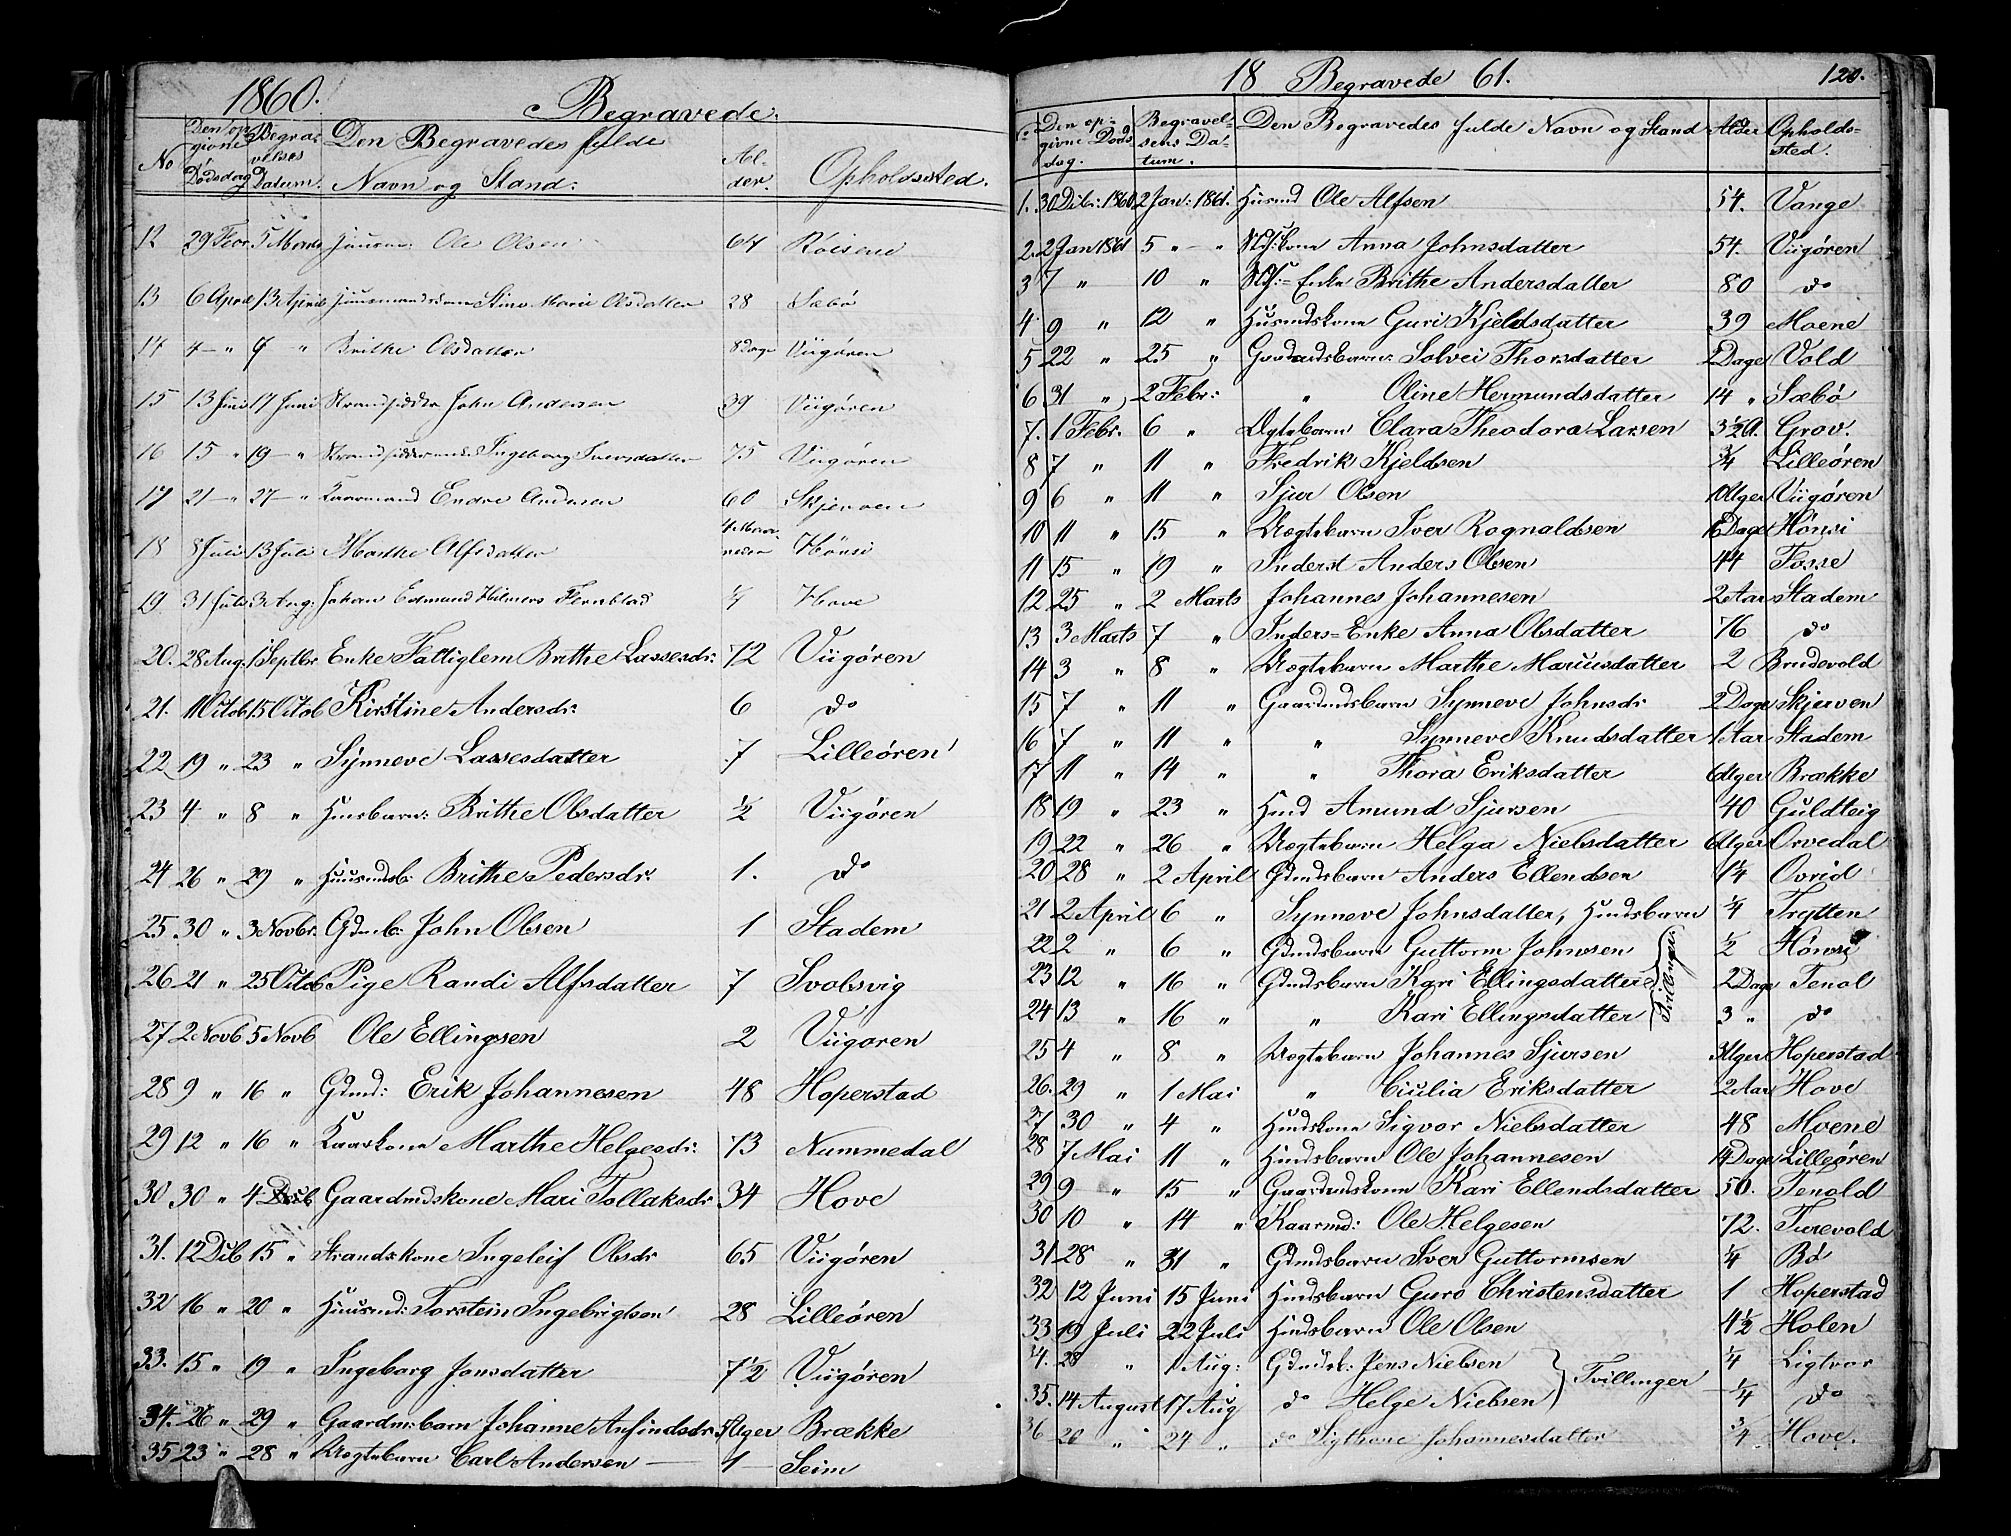 1860.
Begravede.
No Den opgivne Dødsdag Begravelses Datum. Den Begravedes fulde Navn og Stand. Alder. Opholdssted.
12 29 Febr 5 Marts Ole Olsen 64 Röisene
13 6 April 13 April Huusmandskone Stine Marie Olsdatter 28 Sæbö
14 4 – " 7 " Brithe Olsdatter 8 Dage Viigören
15 13 Juni 17 Juni Strandsidder John Andersen 39 Viigören
16 15 " 19 – " Ingeborg Iversdatter 75 Viigören
17 21 – " 27 – " Kaarmand Endre Andersen 60 Skjerven
18 8 Juli 13 Juli Marthe Alfsdatter 4 Maaneder Hönsi
19 31 Juli 3 Aug: Johan Edmund Hilmers Fernblad 1/4 Hove
20. 28 Aug. 1 Septbr. Enke Fattiglem Brithe Lassesdr: 72 Viigören
21. 11 Octob. 15 Octob Kirstine Andersdr: 6 do
22 19 " 23 " Synneve Lassesdatter 7 Lilleören
23 4 " 8 " Huusbarn: Brithe Olsdatter 1/2 Viigören
24 26 " 29 " Huusmdsb: Brithe Pedersdr. 1. do
25 30 " 3 Novbr. Gdmb: John Olsen 1 Stadem
26 21 " 25 Octob Pige Randi Alfsdatter 7 Svolsvig
27 2 Novb 5 Novb Ole Ellingsen 2 Viigoren
28 9 " 16 " Gdmd: Erik Johannesen 48 Hoperstad
29 12 " 16 " Kaarkone Marthe Helgesdr: 73 Nummedal
30 30 " 4 Decb Gaardmdskone Mari Tollaksdr 34 Hove
31. 12 Dcb 15 " Strandskone Ingeleif Olsdr 65 Viigören
32 16 " 20 " Huusmd: Torstein Ingebrigtsen 28 Lilleören
33. 15 " 19 " Ingeborg Jonsdatter 7 1/2 Viigören
34. 26 " 29 " Gaardmsbarn Johanne Anfindsdr. 5 Uger Brække
35 23 " 28 " Uægtebarn Carl Andersen — 1 — Seim
18 Begravede 61. 120.
Den opgivne Dödsdag. Begravelsens Datum. Den Begravedes fulde Navn og Stand Alder Opholdssted.
1. 30 Dcbr: 1860 2 Jan: 1861. Husmd Ole Alfsen 54. Vange
2. 2 Jan 1861 5 " – " Stds:kone Anna Johnsdatter 54. Viigören
3 7 " 10 " Enke Brithe Andersdatter 80 do
4 9 " 12 " Husmdskone Guri Kjeldsdatter 39 Moene
5 22 " 25 " Gaardmdsbarn: Solvei Thorsdatter Dage Vold
6 31 " 2 Febr: " Oline Hermundsdatter 14 " Sæbö
7. 1 Febr. 6 " Ægtebarn Clara Theodora Larsen 3 1/2 A. Grov.
8 7 " 11 " Fredrik Kjeldsen 3/4 Lilleören
9 6 " 11 " Sjur Olsen 10 Uger Viigören
10 11 " 15 " Uægtebarn Iver Rognaldsen 16 Dage Hönsi
11 15 " 19 " Inderst Anders Olsen 44 Fosse
12 25 " 2 Marts Johannes Johannesen 2 Aar Stadem
13 3 Marts 7 " Inders=Enke Anna Olsdatter 76 do
14 3 " 8 " Uægtebarn Marthe Marcusdatter 2 Brudevold
15 7 " 11 " Gaardmdsbarn Synneve Johnsdr 2 Dage Skjerven
16 7 " 11 " " Synneve Knudsdatter 1 Aar Stadem
17 11 " 14 " " Thora Eriksdatter 6 Uger Brække
18 19 " 23 " Hmd Amund Sjursen 40 Guldteig
19 22 " 26 " Uægtebarn Helga Nielsdatter 6 Uger Orvedal
20 28 " 2 April Gdmdsbarn Anders Ellendsen 14 Ovrid
21 2 April 6 " Synneve Johnsdatter, Hmdsbarn 1/4 Trytten
22 2 " 6 " Gdmdsbarn Guttorm Johnsen 1/2 Hönsi
23 12 " 16 " Gdmdsbarn Kari Ellingsdatter 2 Dage Tenol
Tvillinger
24 13 " 16 " " Kari Ellingsdatter 3 " do
25 4 " 8 " Uægtebarn Johannes Sjursen 3 Uger Hoperstad
26. 29 " 1 Mai " Ciulia Eriksdatter 2 Aar Hove
27 30 " 4 " Hmdskone Sigvor Nielsdatter 48 Moene
28 7 Mai 11 " Hmdsbarn Ole Johannesen 14 Dage Lilleören
29 9 " 15 " Gaardmdskone Kari Ellendsdatter 50. Tenold
30 10 " 14 " Kaarmd: Ole Helgesen 72. Turevold
31 28 " 31 " Gdmdsbarn Iver Guttormsen 1/4 Bö
32 12 Juni 15 Juni Hmdsbarn Guro Christensdatter 1 Hoperstad
33 19 Juli 22 Juli Hmdsbarn Ole Olsen 4 1/2 Holen
4. 28 " 1 Aug: Gdmdsb: Jens Nielsen 1/4 Ligtvor
Tvillinger
35. 14 August 17 Aug do Helge Nielsen 1/4 do
36 20 " 24 " do Sigthone Johannesdatter 3/4 Hove.